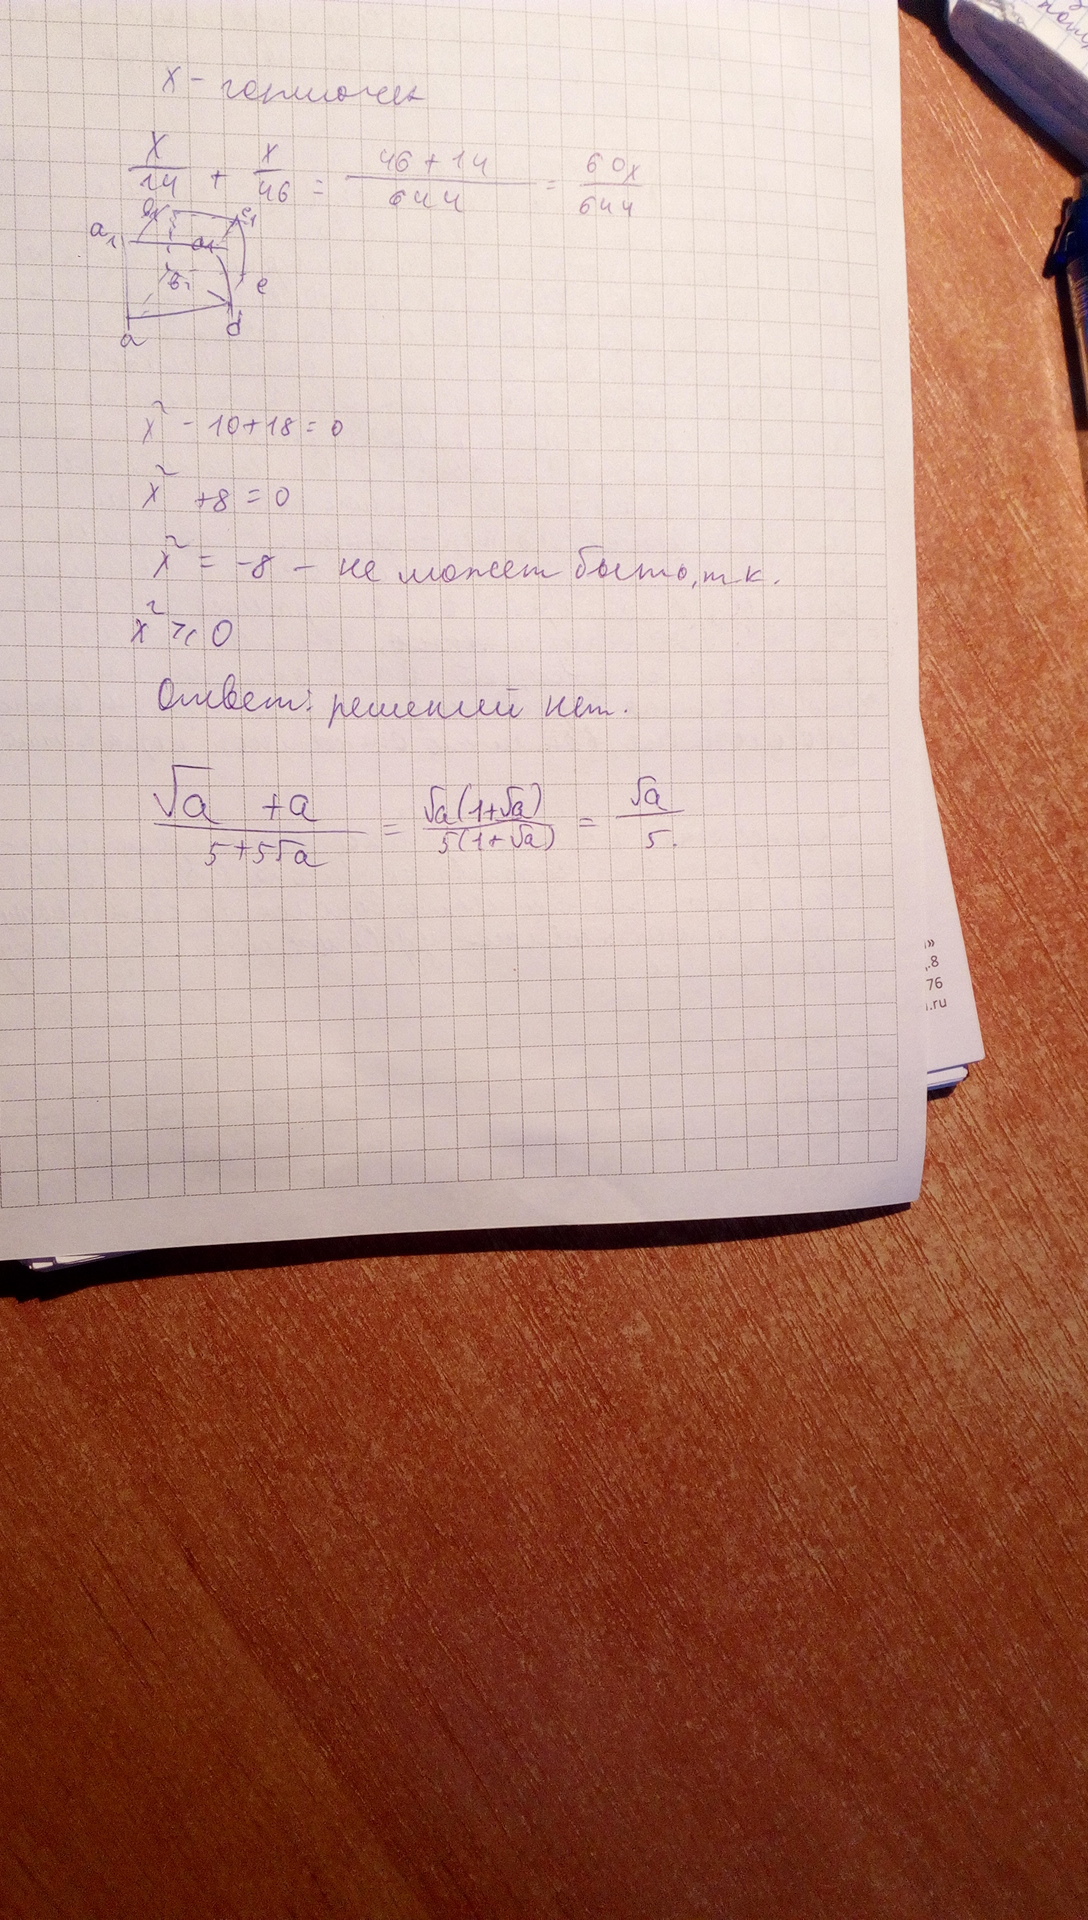 x -
x/14 + x/46 = 46 + 14/644 = 60x/644
a₁ в₁ c₁ d₁
в c
a d
x² - 10 + 18 = 0
x² + 8 = 0
x² = -8 - не может быть, т к.
x² ≥ 0
Ответ: решений нет.
√a + a/5 + 5√a = √a(1+√a)/5(1+√a) = √a/5.
»
.8
76
.ru